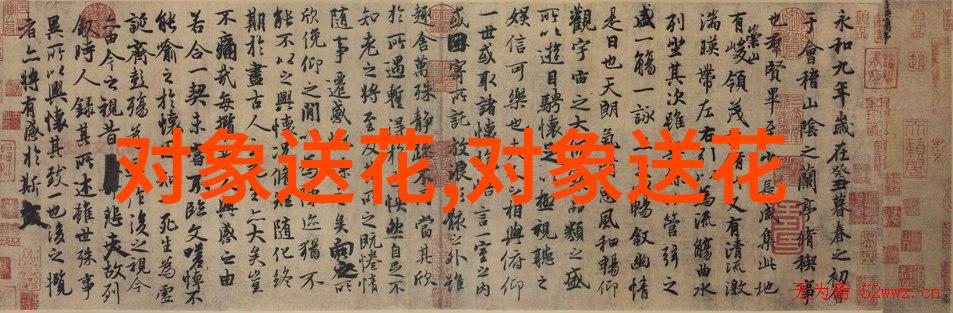 永和九年歲在癸丑暮春之初會
于會稽山陰之蘭亭脩稧事
也羣賢畢至少長咸集此地
有崇山峻領茂林脩竹又有清流激
湍暎帶左右引以為流觴曲水
列坐其次雖無管弦之
盛一觴一詠暢敘幽情
是日也天朗氣惠風和暢仰
觀宇宙之大品類之盛
所以遊目騁懷足極視聽之
娛信可樂也相與俯仰
一世或取諸懷悟言一室之內
或因寄所託放浪形骸之外雖
趣舍萬殊靜躁不當其欣
於所遇暫得怏然自足不
知老之將至及其所之既惓情
隨事遷感矣向之所
欣俛仰之間以迹猶不
能不以之興懷況脩短隨化終
期於盡古人大矣豈
不痛哉每攬興感之由
若合一契未嘗不臨文嗟悼不
能喻之於懷死生為虛
誕齊彭殤作後之視今
亦由今之視昔悲夫故列
敘時人錄其所述雖世殊事
異所以興懷其致一也後之攬
者亦將有感於斯文
对象送花,对象送花
天为斋 52wwz.cn